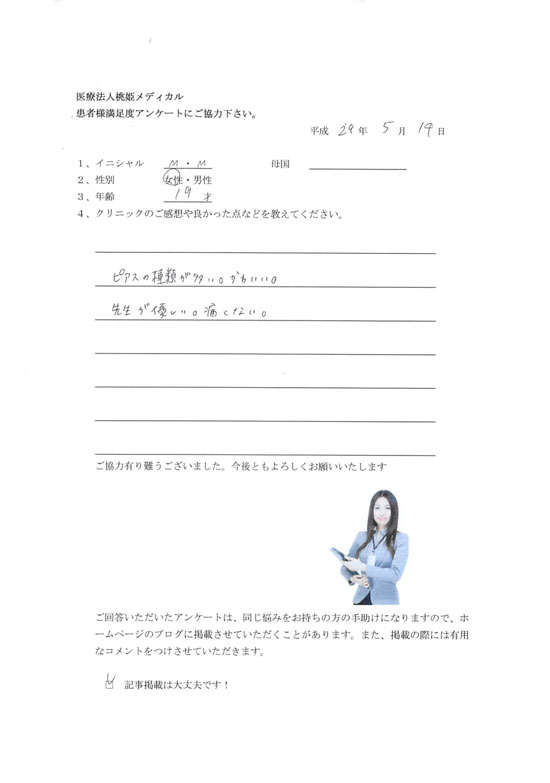 医療法人桃姫メディカル
患者様満足度アンケートにご協力下さい。
平成 29 年 5 月 19 日
1、イニシャル M・M 母国
2、性別 女性・男性
3、年齢 19 才
4、クリニックのご感想や良かった点などを教えてください。
ピアスの種類が多い。かわいい。
先生が優しい。痛くない。
ご協力有り難うございました。今後ともよろしくお願いいたします
ご回答いただいたアンケートは、同じ悩みをお持ちの方の手助けになりますので、ホ
ームページのブログに掲載させていただくことがあります。また、掲載の際には有用
なコメントをつけさせていただきます。
記事掲載は大丈夫です！